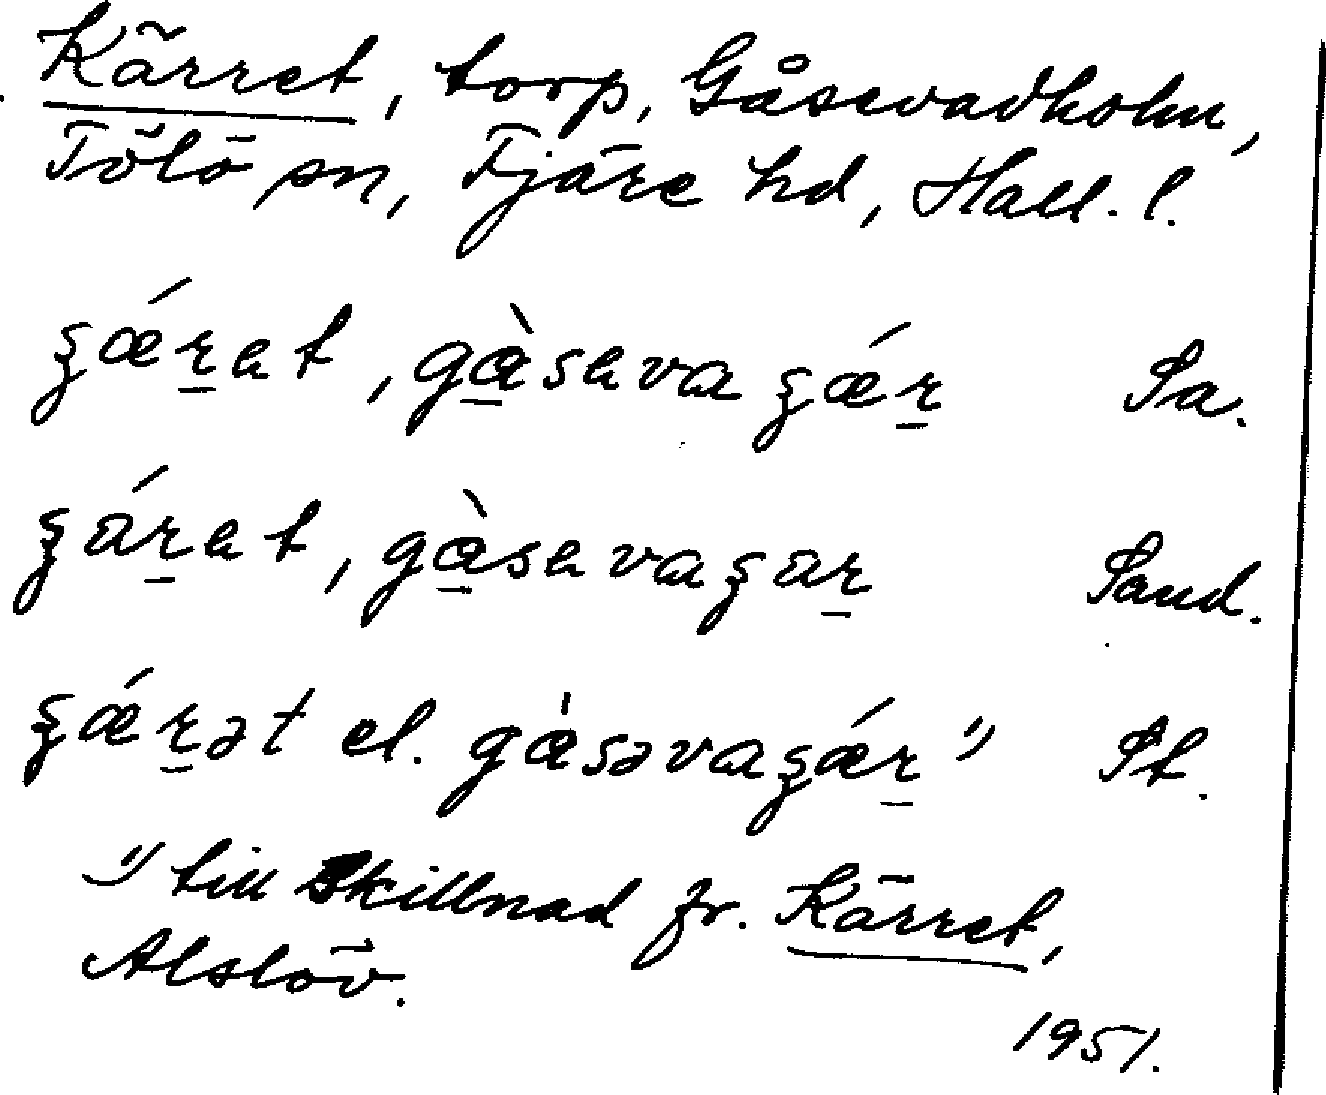 Kärret, torp, Gåsevadholm,
Tölö sn, Fjäre hd, Hall. l.
ʒǽr̲et, gɑ̲̀sevaʒǽr̲ Sa.
ʒár̲et, gɑ̲̀sevaʒar̲ Sand.
ʒǽr̲ət el. gɑ̀səvaʒǽr̲ ") St.
") till skillnad fr. Kärret,
Alslöv.
1951.